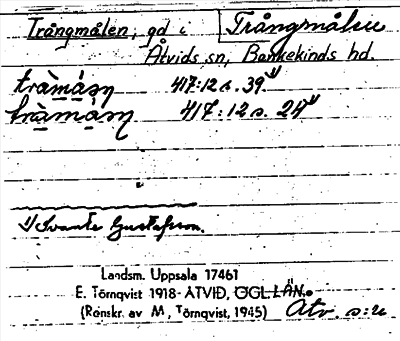 Trångmålen, gd i Trångmålen
Åtvids sn, Bankekinds hd.
tràmá̱ṣn 417:12 s. 39 1)
tràmá̱ṣn 417:12 s. 24 1)
1) Svante Gustafsson.
Landsm. Uppsala 17461
E. Törnqvist 1918- ÅTVID, ÖGL. LÄN.
(Renskr. av M. Törnqvist, 1945) Åtv. s:n